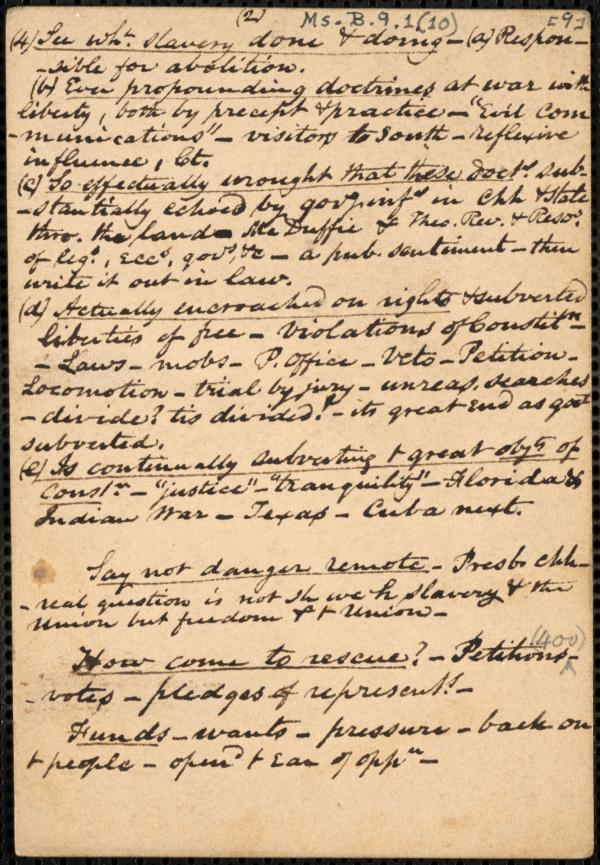 (2) Ms. B.9.1(10) [9]
(4) See wht. slavery done & doing - (a) Respon-
-sible for abolition.
(b) Ever propounding doctrines at war with
liberty, both by precept & practice - "Evil com
-munications" - visitors to South - reflexive
influence,
(c) So effectually wrought that these Doct.s sub-
-stantially echoed by in Chh & State
thro. the land - McDuffie & Theo. Rev. & Resos.
of leg.s, Eccs., govs., &c - a pub. sentiment - then
write it out in law.
(d) Actually encroached on rights & subverted
liberties of free - violations of Constitn -
- Laws - mobs - P. Office - Veto - Petition -
Locomotion - trial by jury - unreas. searches
- divide? tis divided! - its great end as govt
subverted.
(e) Is continually subverting t great objts of
Constn - "justice" - "tranquility" - Florida &
Indian War - Texas - Cuba next.
Say not danger remote - Presb. chh -
- real question is not sh we h slavery & the
Union but freedom & t Union -
How come to rescue? - Petitions - (400)
- votes - pledges of represents. -
Funds - wants - pressure - back on
t people - opend t Ear of oppn -